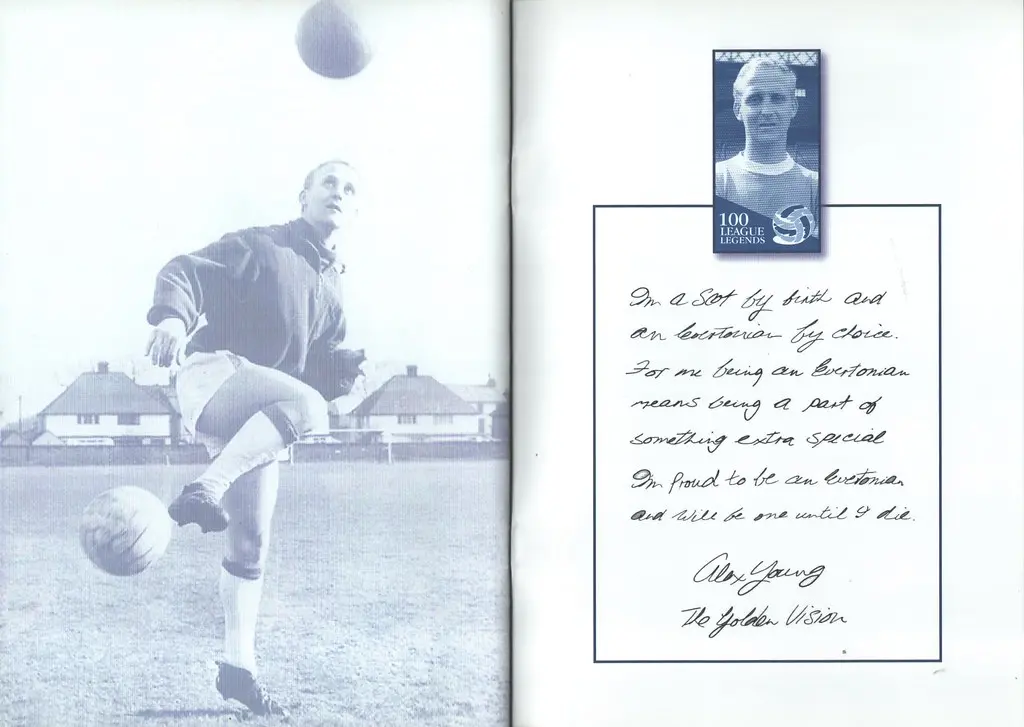 100
LEAGUE
LEGENDS
I'm a Scot by birth and
an Evertonian by choice.
For me being an Evertonian
means being a part of
something extra special
I'm proud to be an Evertonian
and will be one until I die.
Alex Young
The Golden Vision